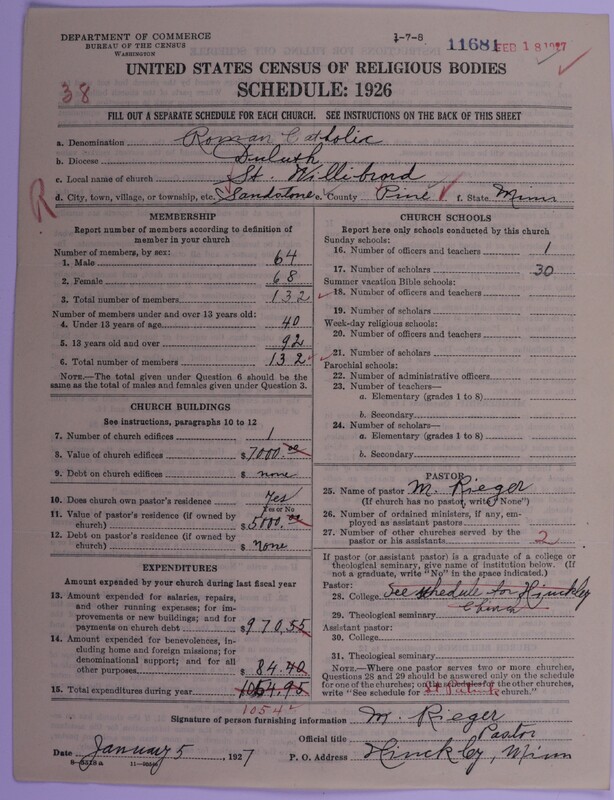 DEPARTMENT OF COMMERCE
BUREAU OF THE CENSUS
WASHINGTON
1-7-8
11681 FEB 18 1927
UNITED STATES CENSUS OF RELIGIOUS BODIES
SCHEDULE: 1926
38
FILL OUT A SEPARATE SCHEDULE FOR EACH CHURCH. SEE INSTRUCTIONS ON THE BACK OF THIS SHEET
a. Denomination Roman Catholic
b. Diocese Duluth
c. Local name of church St. Willibrord
R
d. City, town, village, or township, etc. Sandstone e. County Pine f. State Minn
MEMBERSHIP
Report number of members according to definition of
member in your church
Number of members, by sex:
1. Male 64
2. Female 68
3. Total number of members 132
Number of members under and over 13 years old:
4. Under 13 years of age 40
5. 13 years old and over 92
6. Total number of members 132
NOTE.—The total given under Question 6 should be the
same as the total of males and females given under Question 3.
CHURCH BUILDINGS
See instructions, paragraphs 10 to 12
7. Number of church edifices 1
8. Value of church edifices $7000.00
9. Debt on church edifices $ none
10. Does church own pastor's residence Yes
Yes or No
11. Value of pastor's residence (if owned by
church) $5000.00
12. Debt on pastor's residence (if owned by
church) $ none
EXPENDITURES
Amount expended by your church during last fiscal year
13. Amount expended for salaries, repairs,
and other running expenses; for im-
provements or new buildings; and for
payments on church debt $970.55
14. Amount expended for benevolences, in-
cluding home and foreign missions; for
denominational support; and for all
other purposes $ 84.40
15. Total expenditures during year 1054.95
1054
CHURCH SCHOOLS
Report here only schools conducted by this church
Sunday schools:
16. Number of officers and teachers 1
17. Number of scholars 30
Summer vacation Bible schools:
18. Number of officers and teachers
19. Number of scholars
Week-day religious schools:
20. Number of officers and teachers
21. Number of scholars
Parochial schools:
22. Number of administrative officers
23. Number of teachers—
a. Elementary (grades 1 to 8)
b. Secondary
24. Number of scholars—
a. Elementary (grades 1 to 8)
b. Secondary
PASTOR
25. Name of pastor M. Rieger
(If church has no pastor, write "None")
26. Number of ordained ministers, if any, em-
ployed as assistant pastors
27. Number of other churches served by the
pastor or his assistants 2
If pastor (or assistant pastor) is a graduate of a college or
theological seminary, give name of institution below. (If
not a graduate, write "No" in the space indicated.)
Pastor:
28. College See schedule for Hinckley
29. Theological seminary Church
Assistant pastor:
30. College
31. Theological seminary
NOTE.—Where one pastor serves two or more churches,
Questions 28 and 29 should be answered only on the schedule
for one of the churches; on the schedules for the other churches,
write "See schedule for church."
Signature of person furnishing information M. Rieger
Official title Pastor
Date January 5 1927
P. O. Address Hinckley, Minn
8-5518a